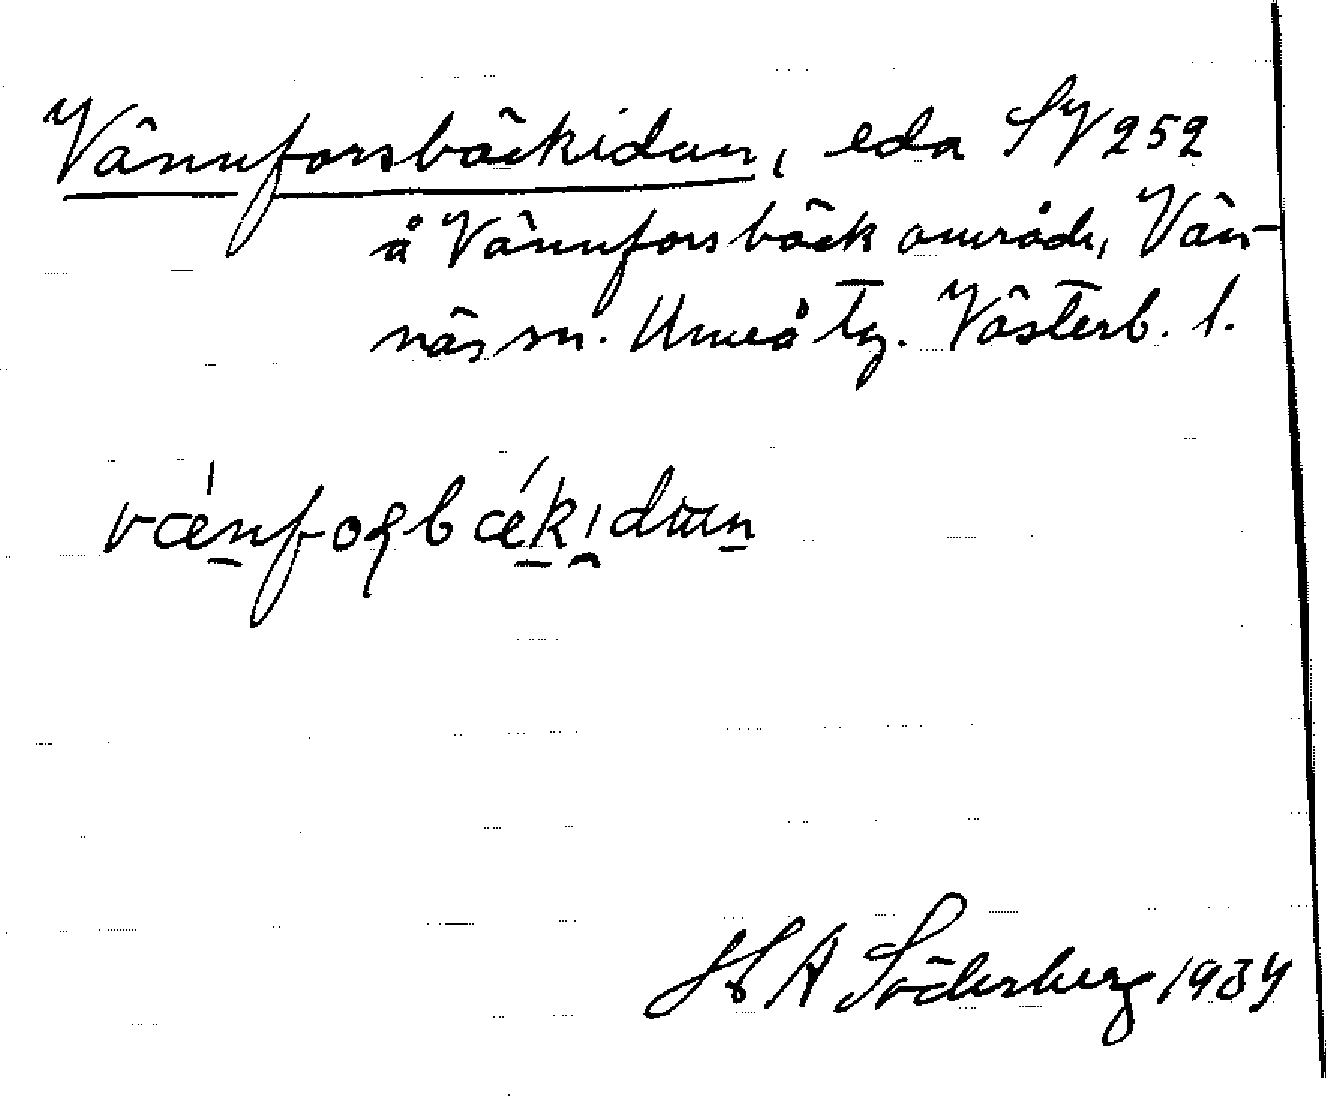 Vännforsbäckidan, eda SV 252
å Vännforsbäck område, Vän-
näs sn. Umeå tg. Västerb. l.
væ´nfoɽbæ´kidan
H A Söderberg 1934